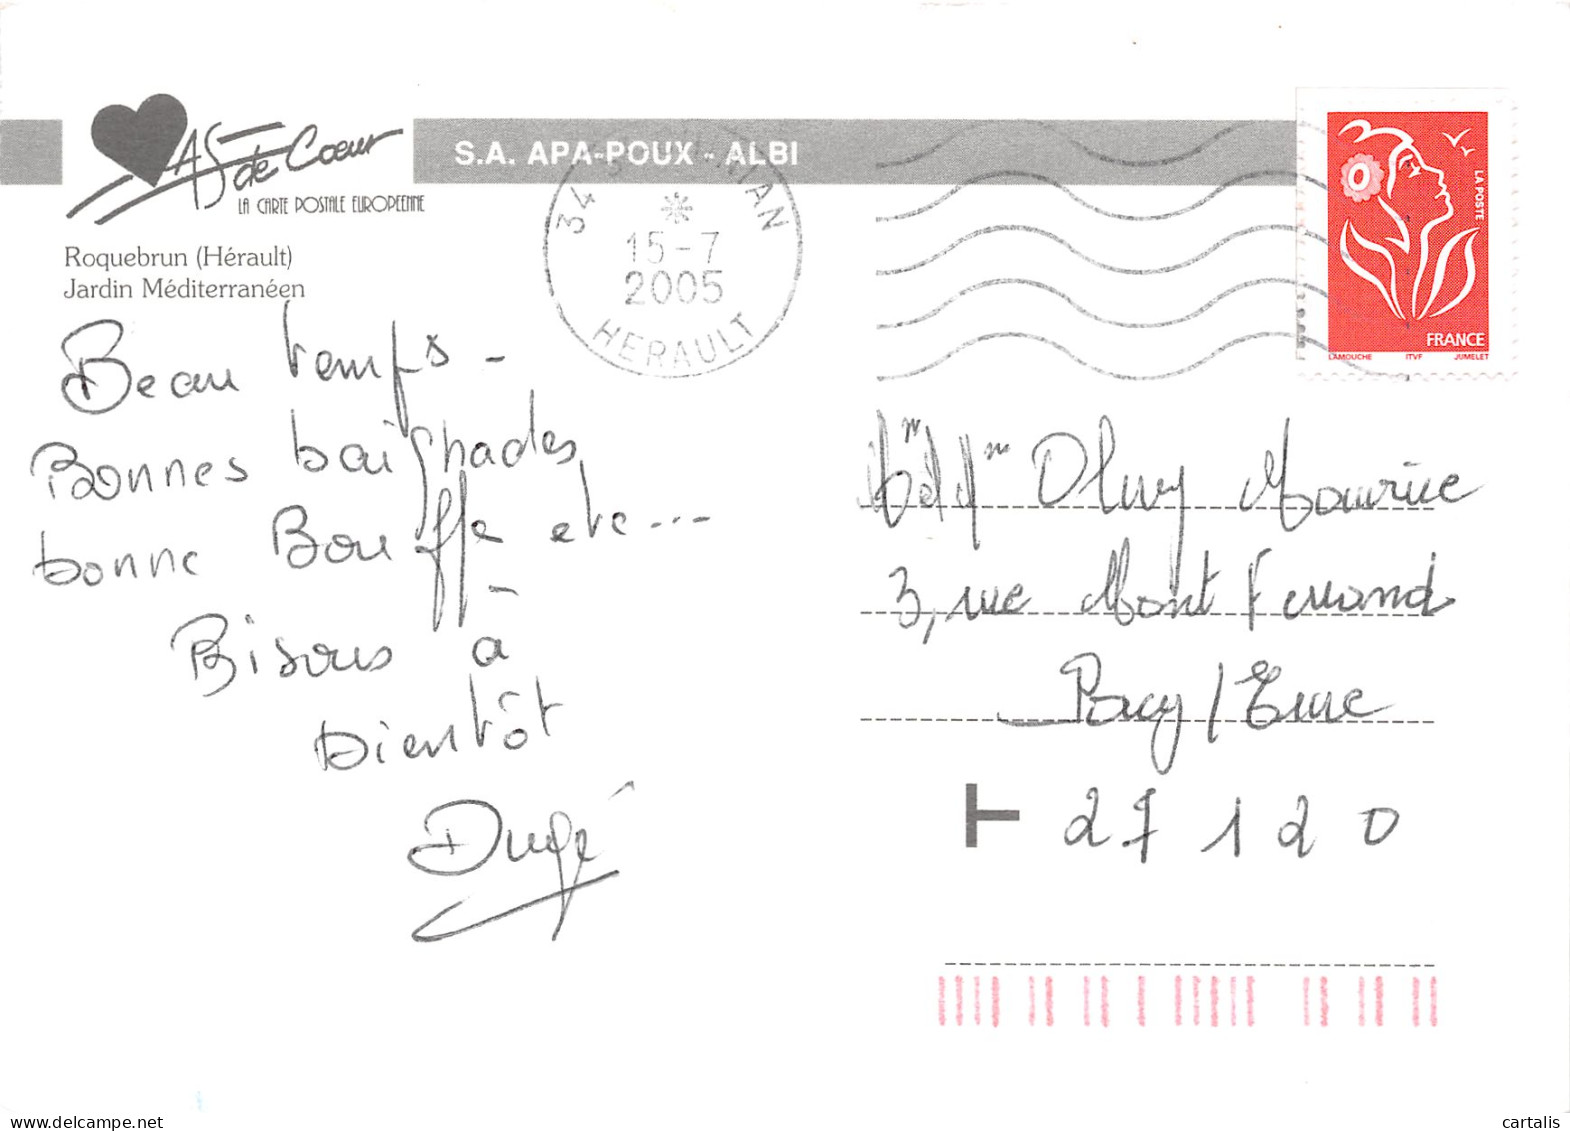 As de Cœur
LA CARTE POSTALE EUROPEENNE
S.A. APA-POUX - ALBI
Roquebrun (Hérault)
Jardin Méditerranéen
34
15-7
2005
HERAULT
LA POSTE
FRANCE
LAMOUCHE ITVF JUMELET
Beau temps -
Bonnes baignades,
bonne Bouffe etc...
Bisous à
bientôt
Maurice
3, rue Mont Ferrand
Pacy / Eure
T 27120
cartalis